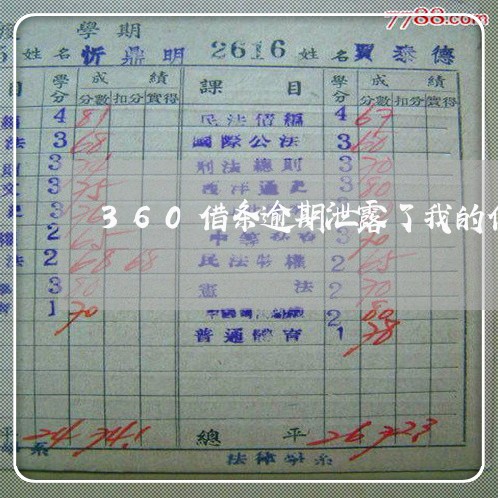 7788.com
學期
姓名 忻鼎明 2616 姓名 賈泰德
目 學分 成績 課目 學分 成績
分數 扣分 實得 分數 扣分 實得
4 81 民法債編 4 67
法 3 68 國際公法 3 60
3 刑法總則 3 70
3 75 西洋通史 3 80
360借条逾期泄露了我的
2 65 3 70
法 2 68 68 民法物權 2 65
3 80 憲法 2 70
1 70 2 80
普通體育 1 78
平 24 74.1 總平 26 72.3
系 法律學系